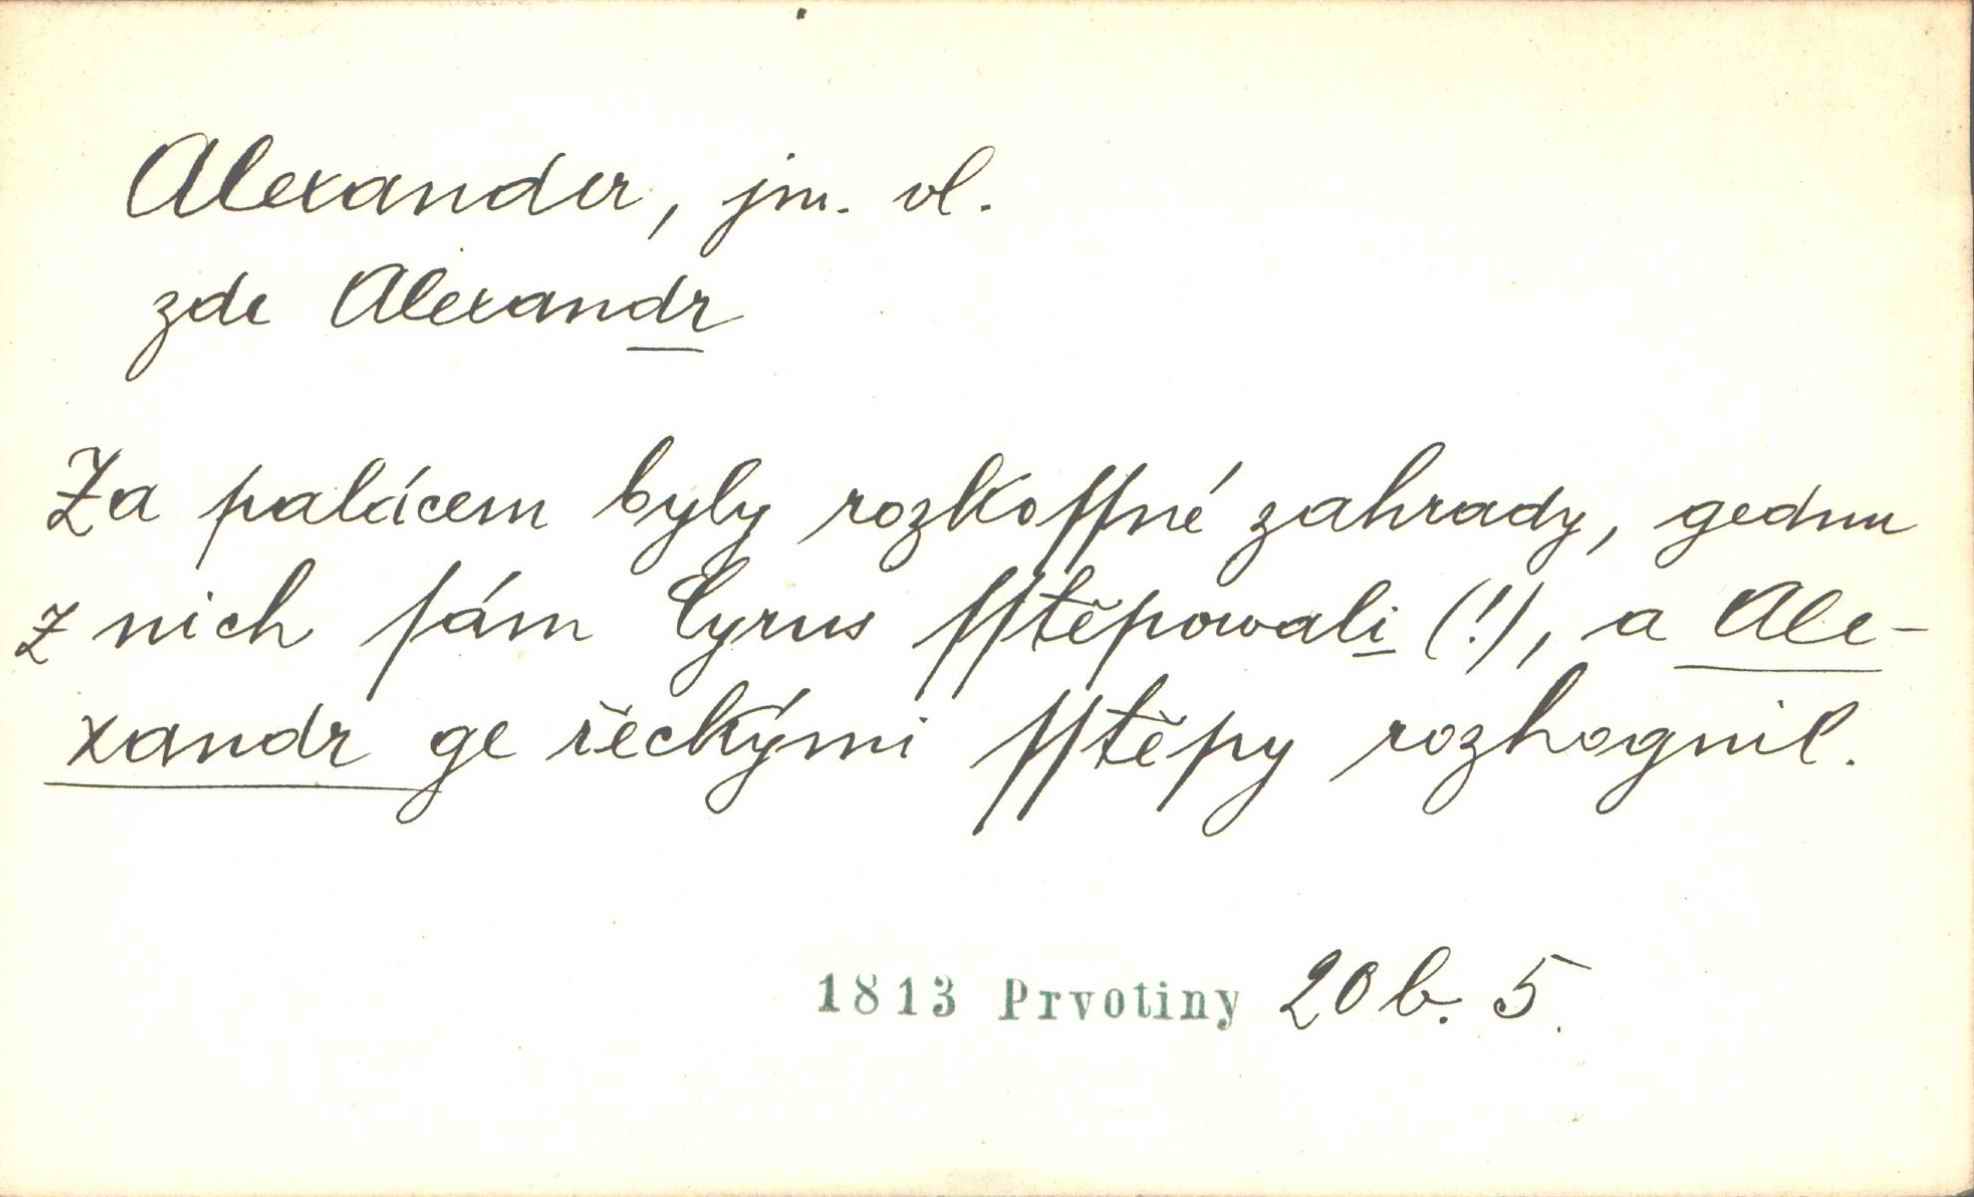 Alexander, jm. vl.
zde Alexandr
Za palácem byly rozkoſſné zahrady, gednu
z nich ſám Cyrus ſſtěpowali (!), a Ale-
xandr ge řeckými ſſtěpy rozhognil.
1813 Prvotiny 20 b. 5.